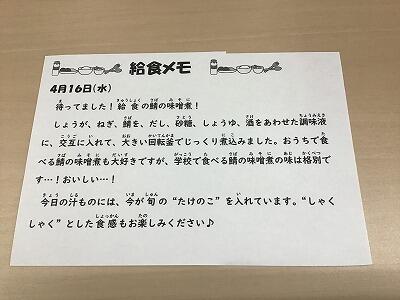 給食メモ
4月16日(水)
待ってました!給食の鯖の味噌煮!
しょうが、ねぎ、鯖を、だし、砂糖、しょうゆ、酒をあわせた調味液
に、交互に入れて、大きい回転釜でじっくり煮込みました。おうちで食
べる鯖の味噌煮も大好きですが、学校で食べる鯖の味噌煮の味は格別で
す…!おいしい…!
今日の汁ものには、今が旬の“たけのこ”を入れています。“しゃく
しゃく”とした食感もお楽しみください♪